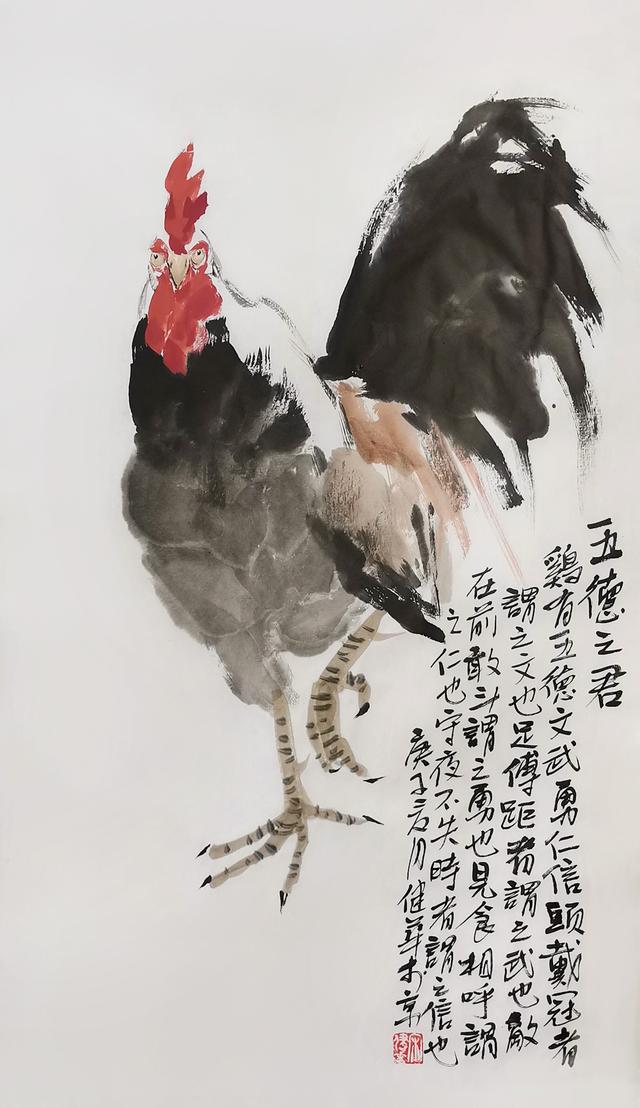 五德之君
鷄有五德文武勇仁信頭戴冠者
謂之文也足傅距者謂之武也敵
在前敢斗謂之勇也見食相呼謂
之仁也守夜不失時者謂之信也
庚子月健華於京